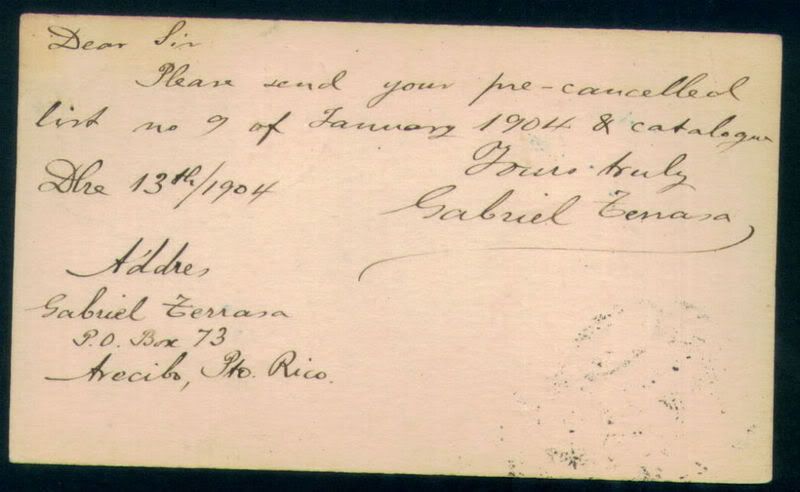 Dear Sir
Please send your pre-cancelled
list no 9 of January 1904 & catalogue
Yours truly
Gabriel Terrasa
Dbre 13th/1904
Addres
Gabriel Terrasa
P.O. Box 73
Arecibo, Pto. Rico.